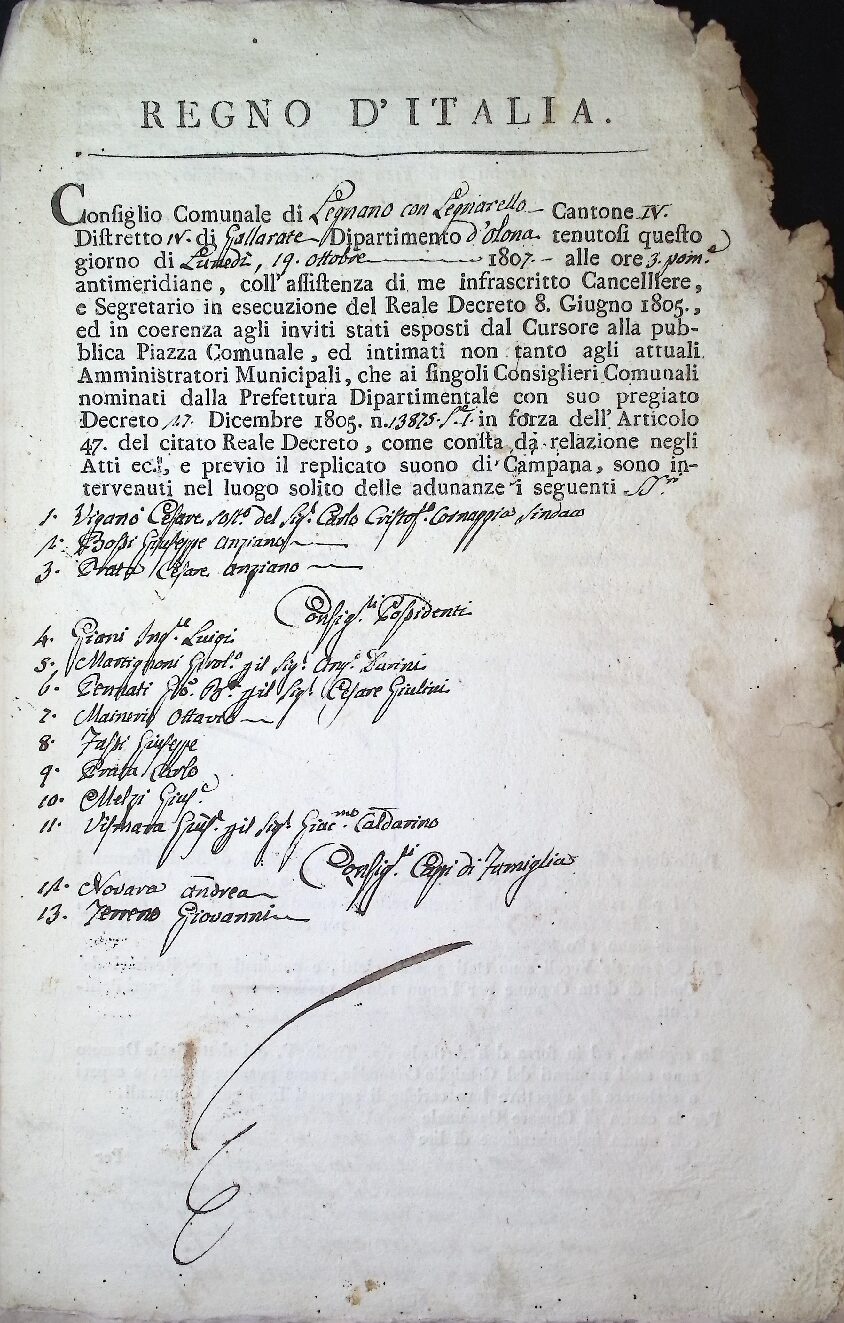 REGNO D'ITALIA.
Consiglio Comunale di Legnano con Legnarello Cantone IV.
Distretto IV. di Gallarate Dipartimento d'Olona tenutosi questo
giorno di Lunedì, 19. Ottobre 1807 - alle ore 3. pom.e
antimeridiane, coll'assistenza di me infrascritto Cancelliere,
e Segretario in esecuzione del Reale Decreto 8. Giugno 1805.,
ed in coerenza agli inviti stati esposti dal Cursore alla pub-
blica Piazza Comunale, ed intimati non tanto agli attuali
Amministratori Municipali, che ai singoli Consiglieri Comunali
nominati dalla Prefettura Dipartimentale con suo pregiato
Decreto 17. Dicembre 1805. n. 13875. in forza dell'Articolo
47. del citato Reale Decreto, come consta da relazione negli
Atti ec., e previo il replicato suono di Campana, sono in-
tervenuti nel luogo solito delle adunanze i seguenti SS.ri
1. Viganò Cesare sost.o del Sig.r Carlo Cristof.o Cornaggia Sindaco
2. Bossi Giuseppe Anziano
3. Prata Cesare Anziano
Consig.ri Possidenti
4. Gioni Ing.e Luigi
5. Martignoni pil Sig.r Ang.o Darini
6. Pennati Gio. B.a pil Sig.r Cesare Giulini
7. Maineris Ottavio
8. Tassi Giuseppe
9. Prata Carlo
10. Melzi Gius.e
11. Vismara Gius.e pil Sig.r Giac.mo Caldarino
Consig.ri Capi di Famiglia
12. Novara Andrea
13. Terreno Giovanni